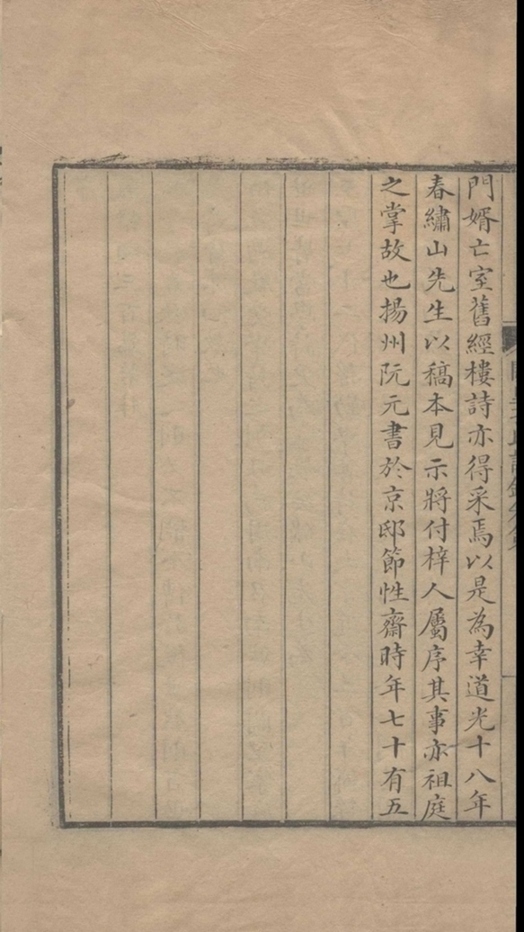 門婿亡室舊經樓詩亦得采焉以是為幸道光十八年
春繡山先生以稿本見示將付梓人屬序其事亦祖庭
之掌故也揚州阮元書於京邸節性齋時年七十有五